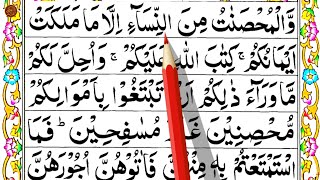 وَّالْمُحْصَنٰتُ مِنَ النِّسَآءِ اِلَّا مَا مَلَكَتْ
اَيْمَانُكُمْ ۚ كِتٰبَ اللّٰهِ عَلَيْكُمْ ۚ وَاُحِلَّ لَكُمْ
مَّا وَرَآءَ ذٰلِكُمْ اَنْ تَبْتَغُوْا بِاَمْوَالِكُمْ
مُّحْصِنِيْنَ غَيْرَ مُسٰفِحِيْنَ ؕ فَمَا
اسْتَمْتَعْتُمْ بِهٖ مِنْهُنَّ فَاٰتُوْهُنَّ اُجُوْرَهُنَّ